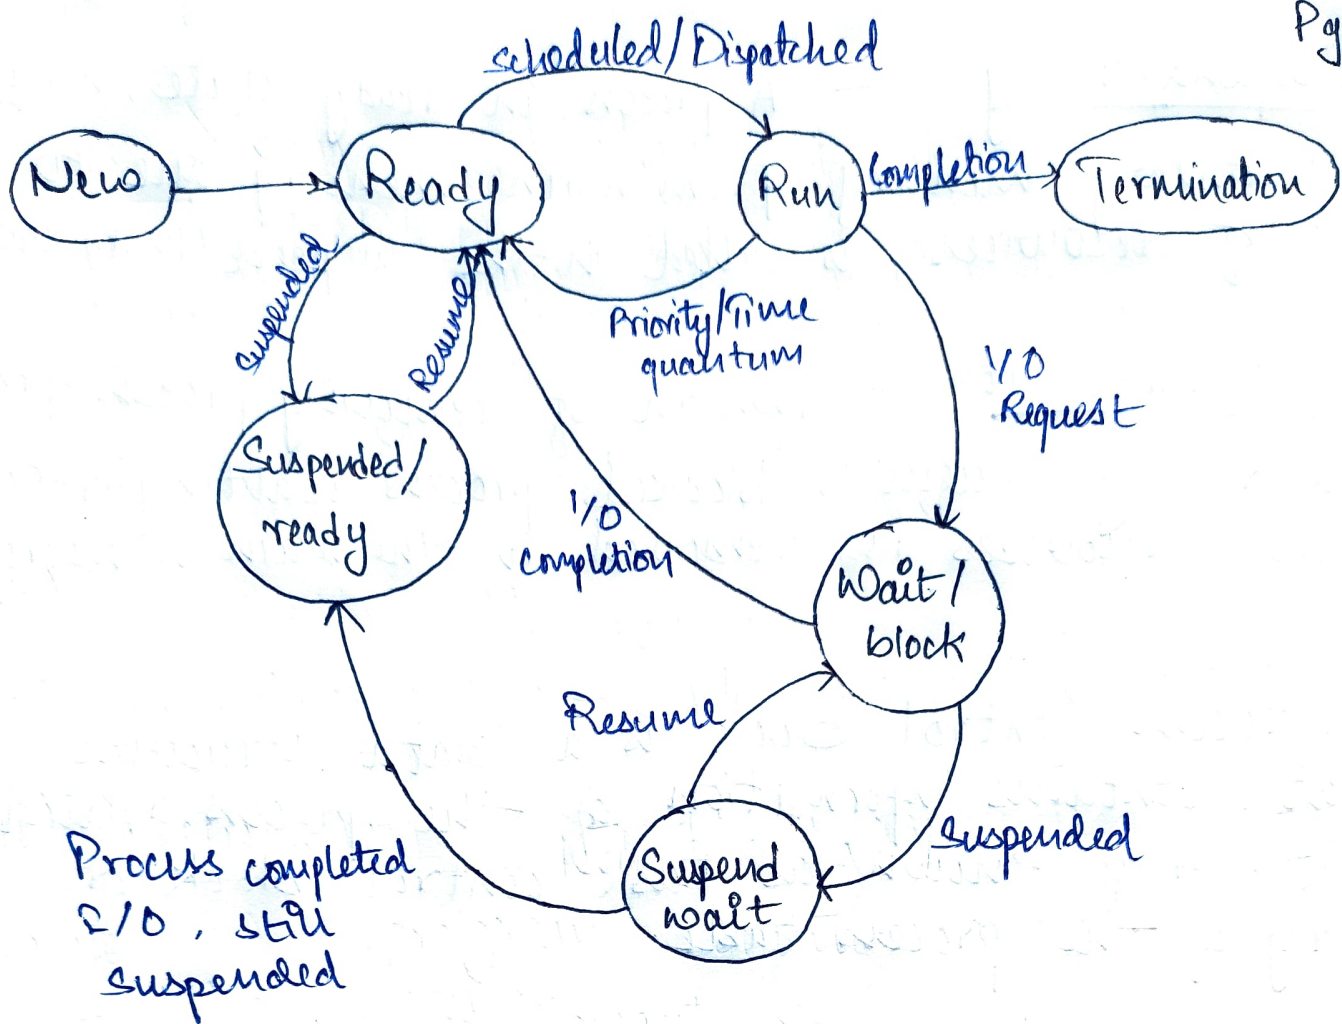 Pg
Scheduled/Dispatched
New
Ready
Run
Completion
Termination
Suspended
Resume
Priority/Time
quantum
I/O
Request
Suspended/
ready
I/O
Completion
Wait/
block
Resume
Suspended
Suspend
wait
Process completed
I/O, still
suspended